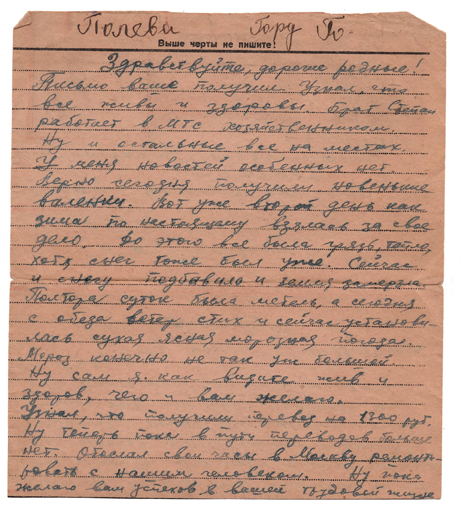 Полева Гард По.
Выше черты не пишите!
Здравствуйте, дорогие родные!
Письмо ваше получил. Узнал, что
все живы и здоровы. Брат Степан
работает в МТС хозяйственником.
Ну и остальные все на местах.
У меня новостей особенных нет
верно сегодня получили новенькие
валенки. Вот уже второй день как
зима по настоящему взялась за свое
дело. До этого все была грязь, тепло,
хотя снег тоже был уже. Сейчас
и снегу подбавило и земля замерзла.
Полтора суток была метель, а сегодня
с обеда ветер стих и сейчас установи
лась сухая ясная морозная погода.
Мороз конечно не так уж большой.
Ну сам я как видите жив и
здоров, чего и вам желаю.
Узнал, что получили перевод на 1300 руб.
Ну теперь пока в пути переводов больше
нет. Отослал свои часы в Москву ремонти
ровать с нашим человеком. Ну пока
желаю вам успехов в вашей трудовой жизни